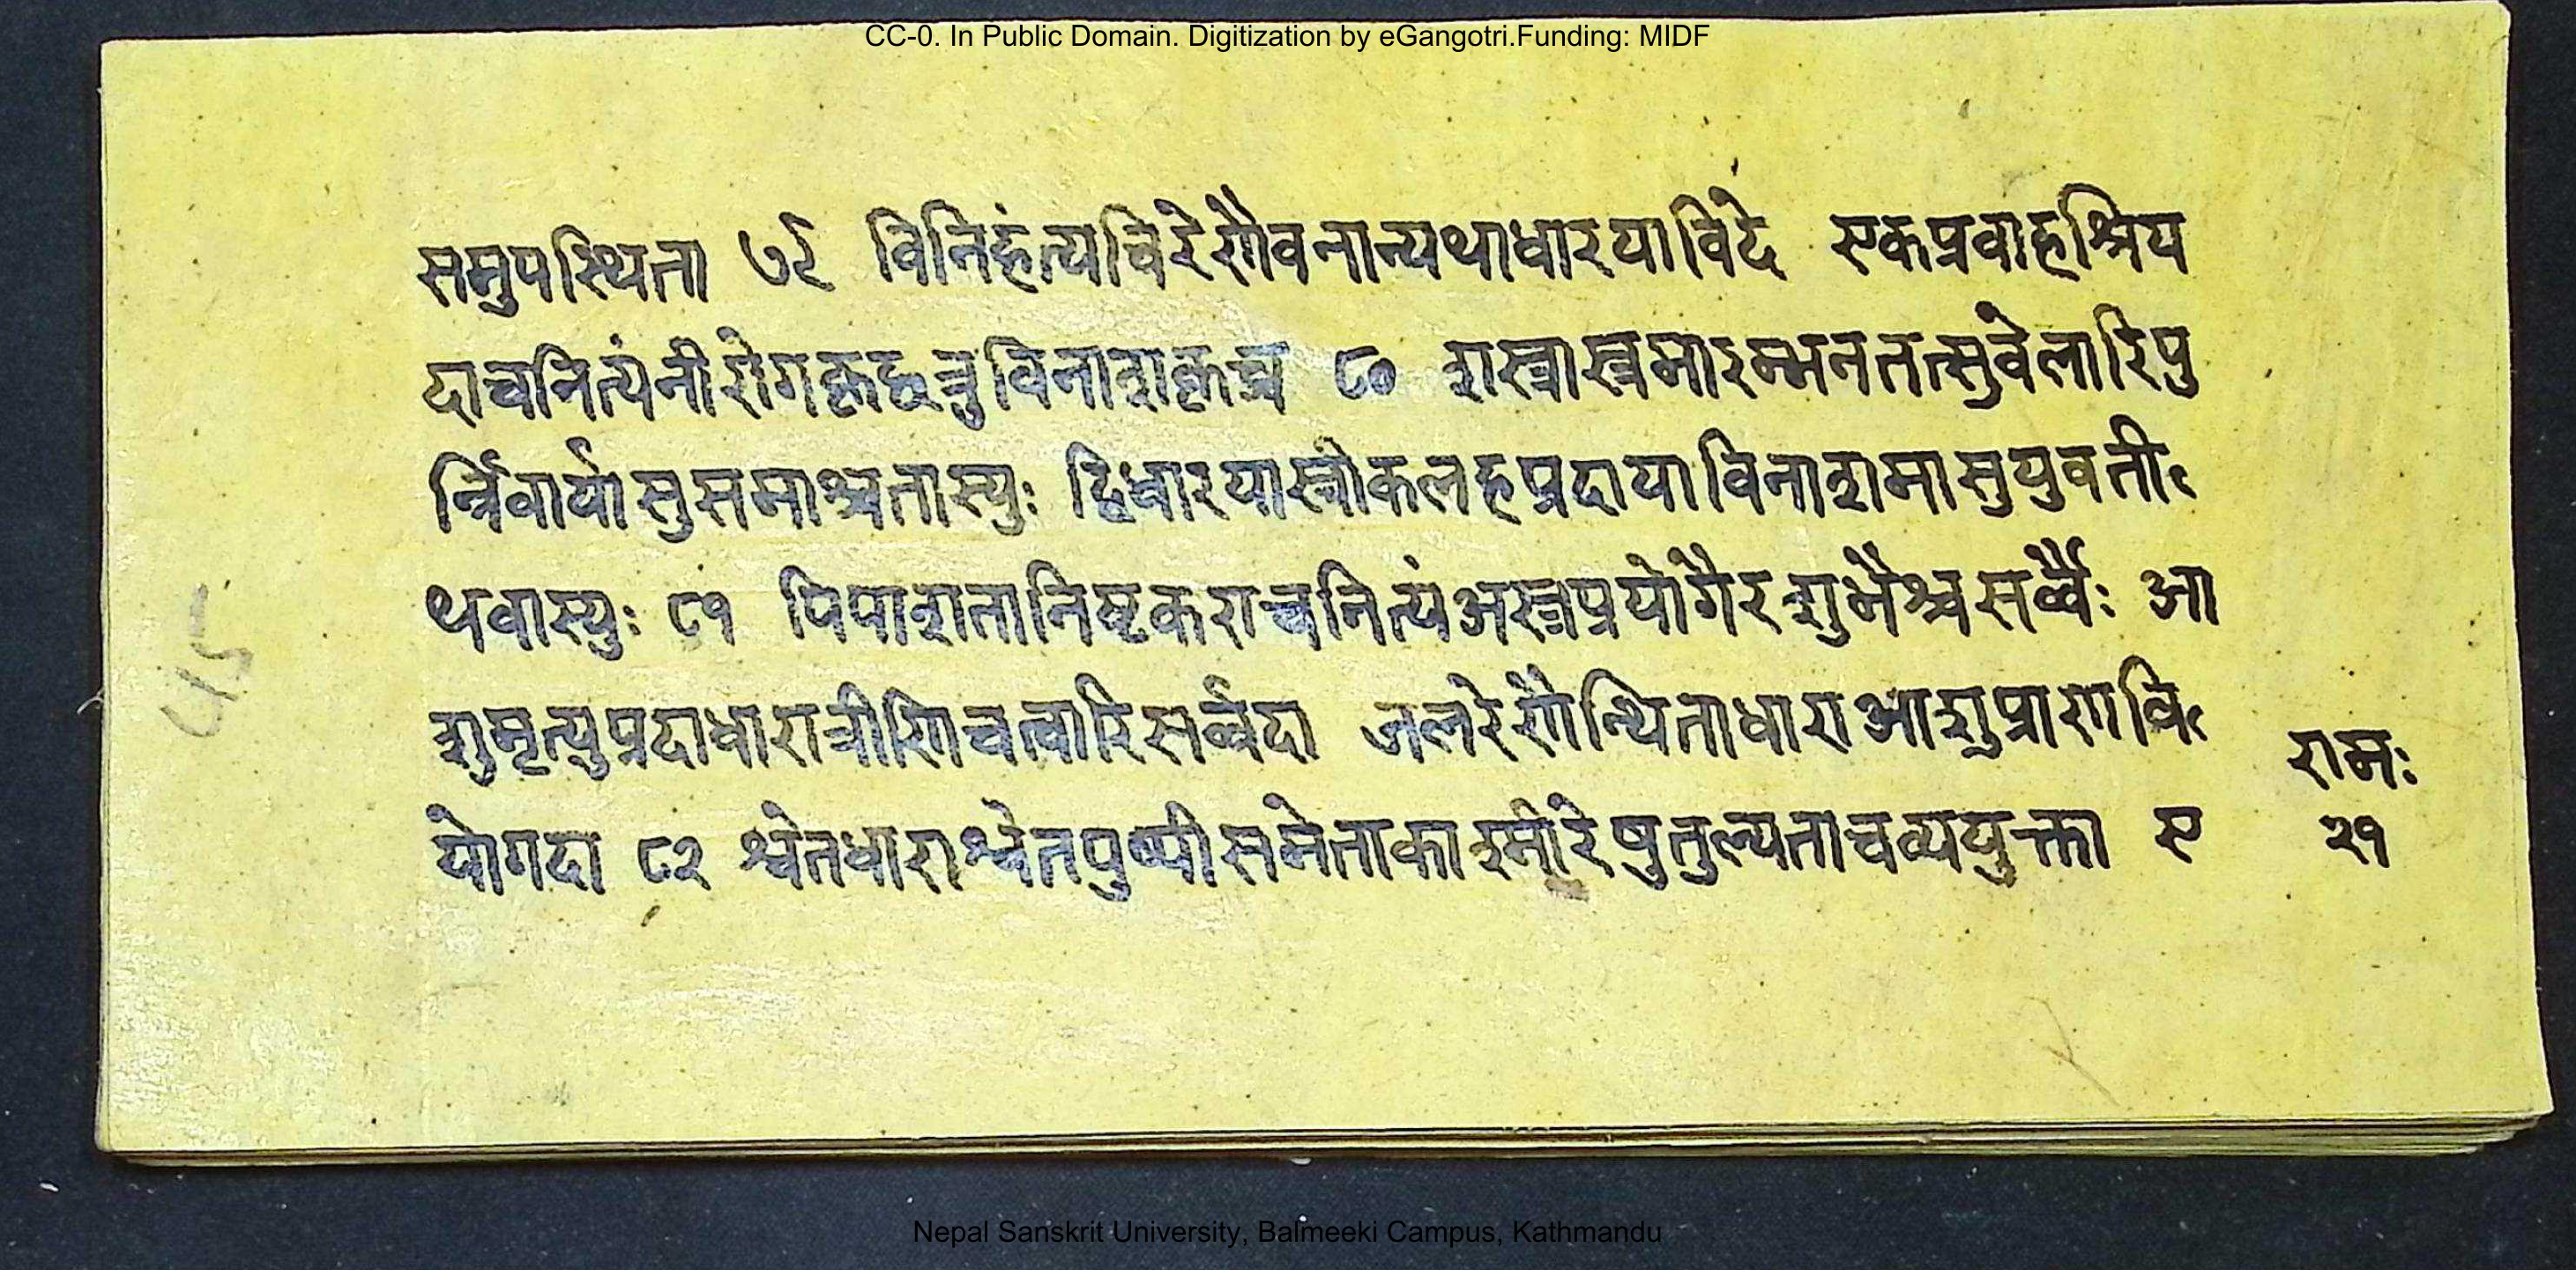 CC-0. In Public Domain. Digitization by eGangotri.Funding: MIDF
समुपस्थिता ७९ विनिहंत्यचिरेणैवनान्यथाधारयाविदे एकप्रवाहश्रिय
दाचनित्यंनीरोगकृच्छत्रुविनाशकृच्च ८० शस्त्रास्त्रमारम्भनतत्सुवेलारिपु
र्न्निवार्यासुसमाश्चतास्युः द्विधारयास्त्रीकलहप्रदायाविनाशमासुयुवती
थवास्युः ८१ पिपाशतानिष्टकराच्चनित्यंअस्त्रप्रयोगैरशुभैश्चसर्व्वैः आ
शुमृत्युप्रदाधारात्रीणिचत्वारिसर्व्वदा जलरेणैन्थिताधाराआशुप्राणवि
योगदा ८२ श्वेतधाराश्वेतपुष्पीसमेताकाश्मीरेषुतुल्यताचव्ययुक्ता ए
रामः
२१
४५
Nepal Sanskrit University, Balmeeki Campus, Kathmandu